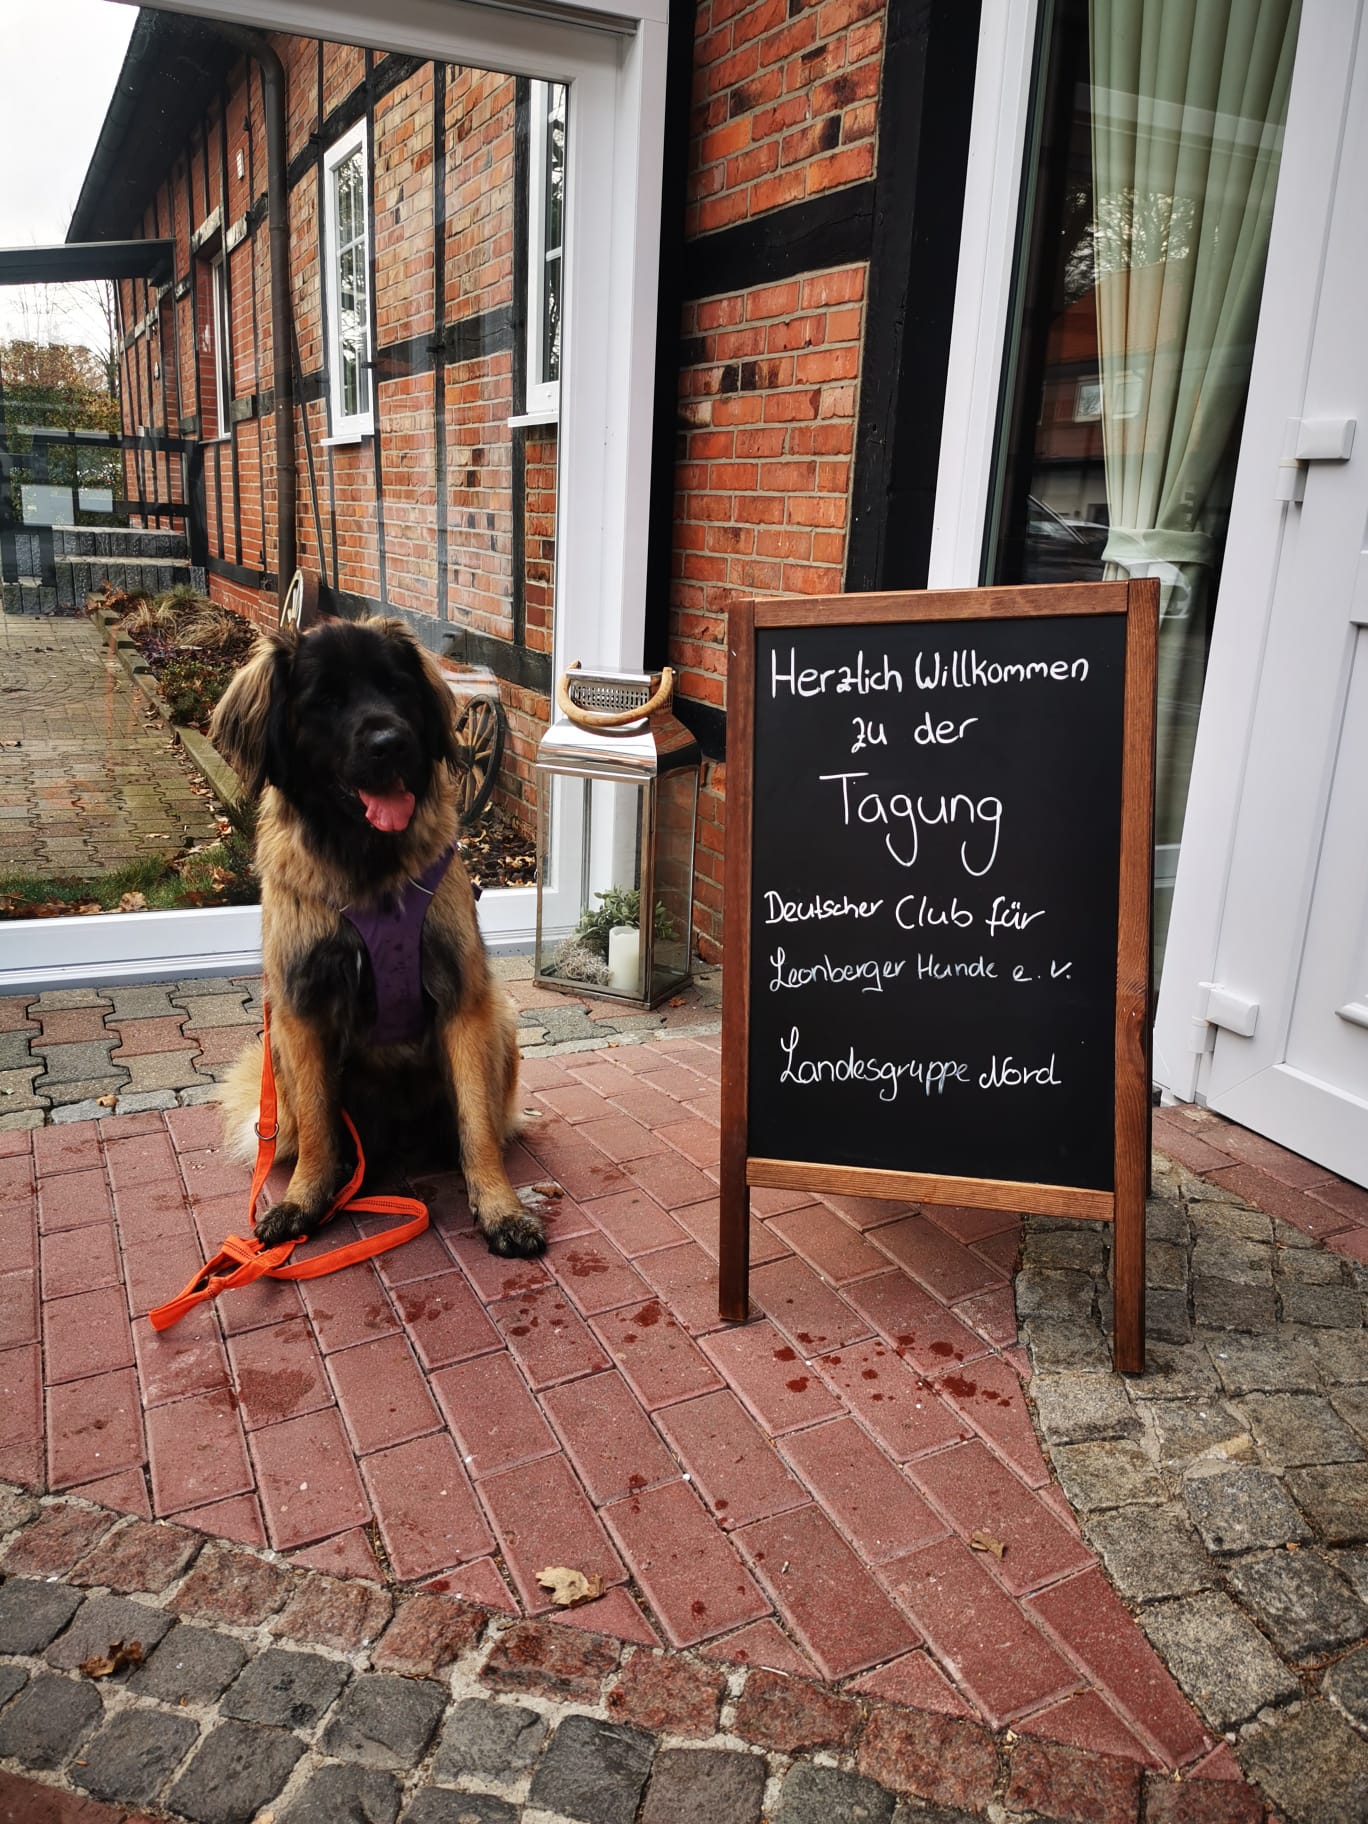 Herzlich Willkommen
zu der
Tagung
Deutscher Club für
Leonberger Hunde e. V.
Landesgruppe Nord